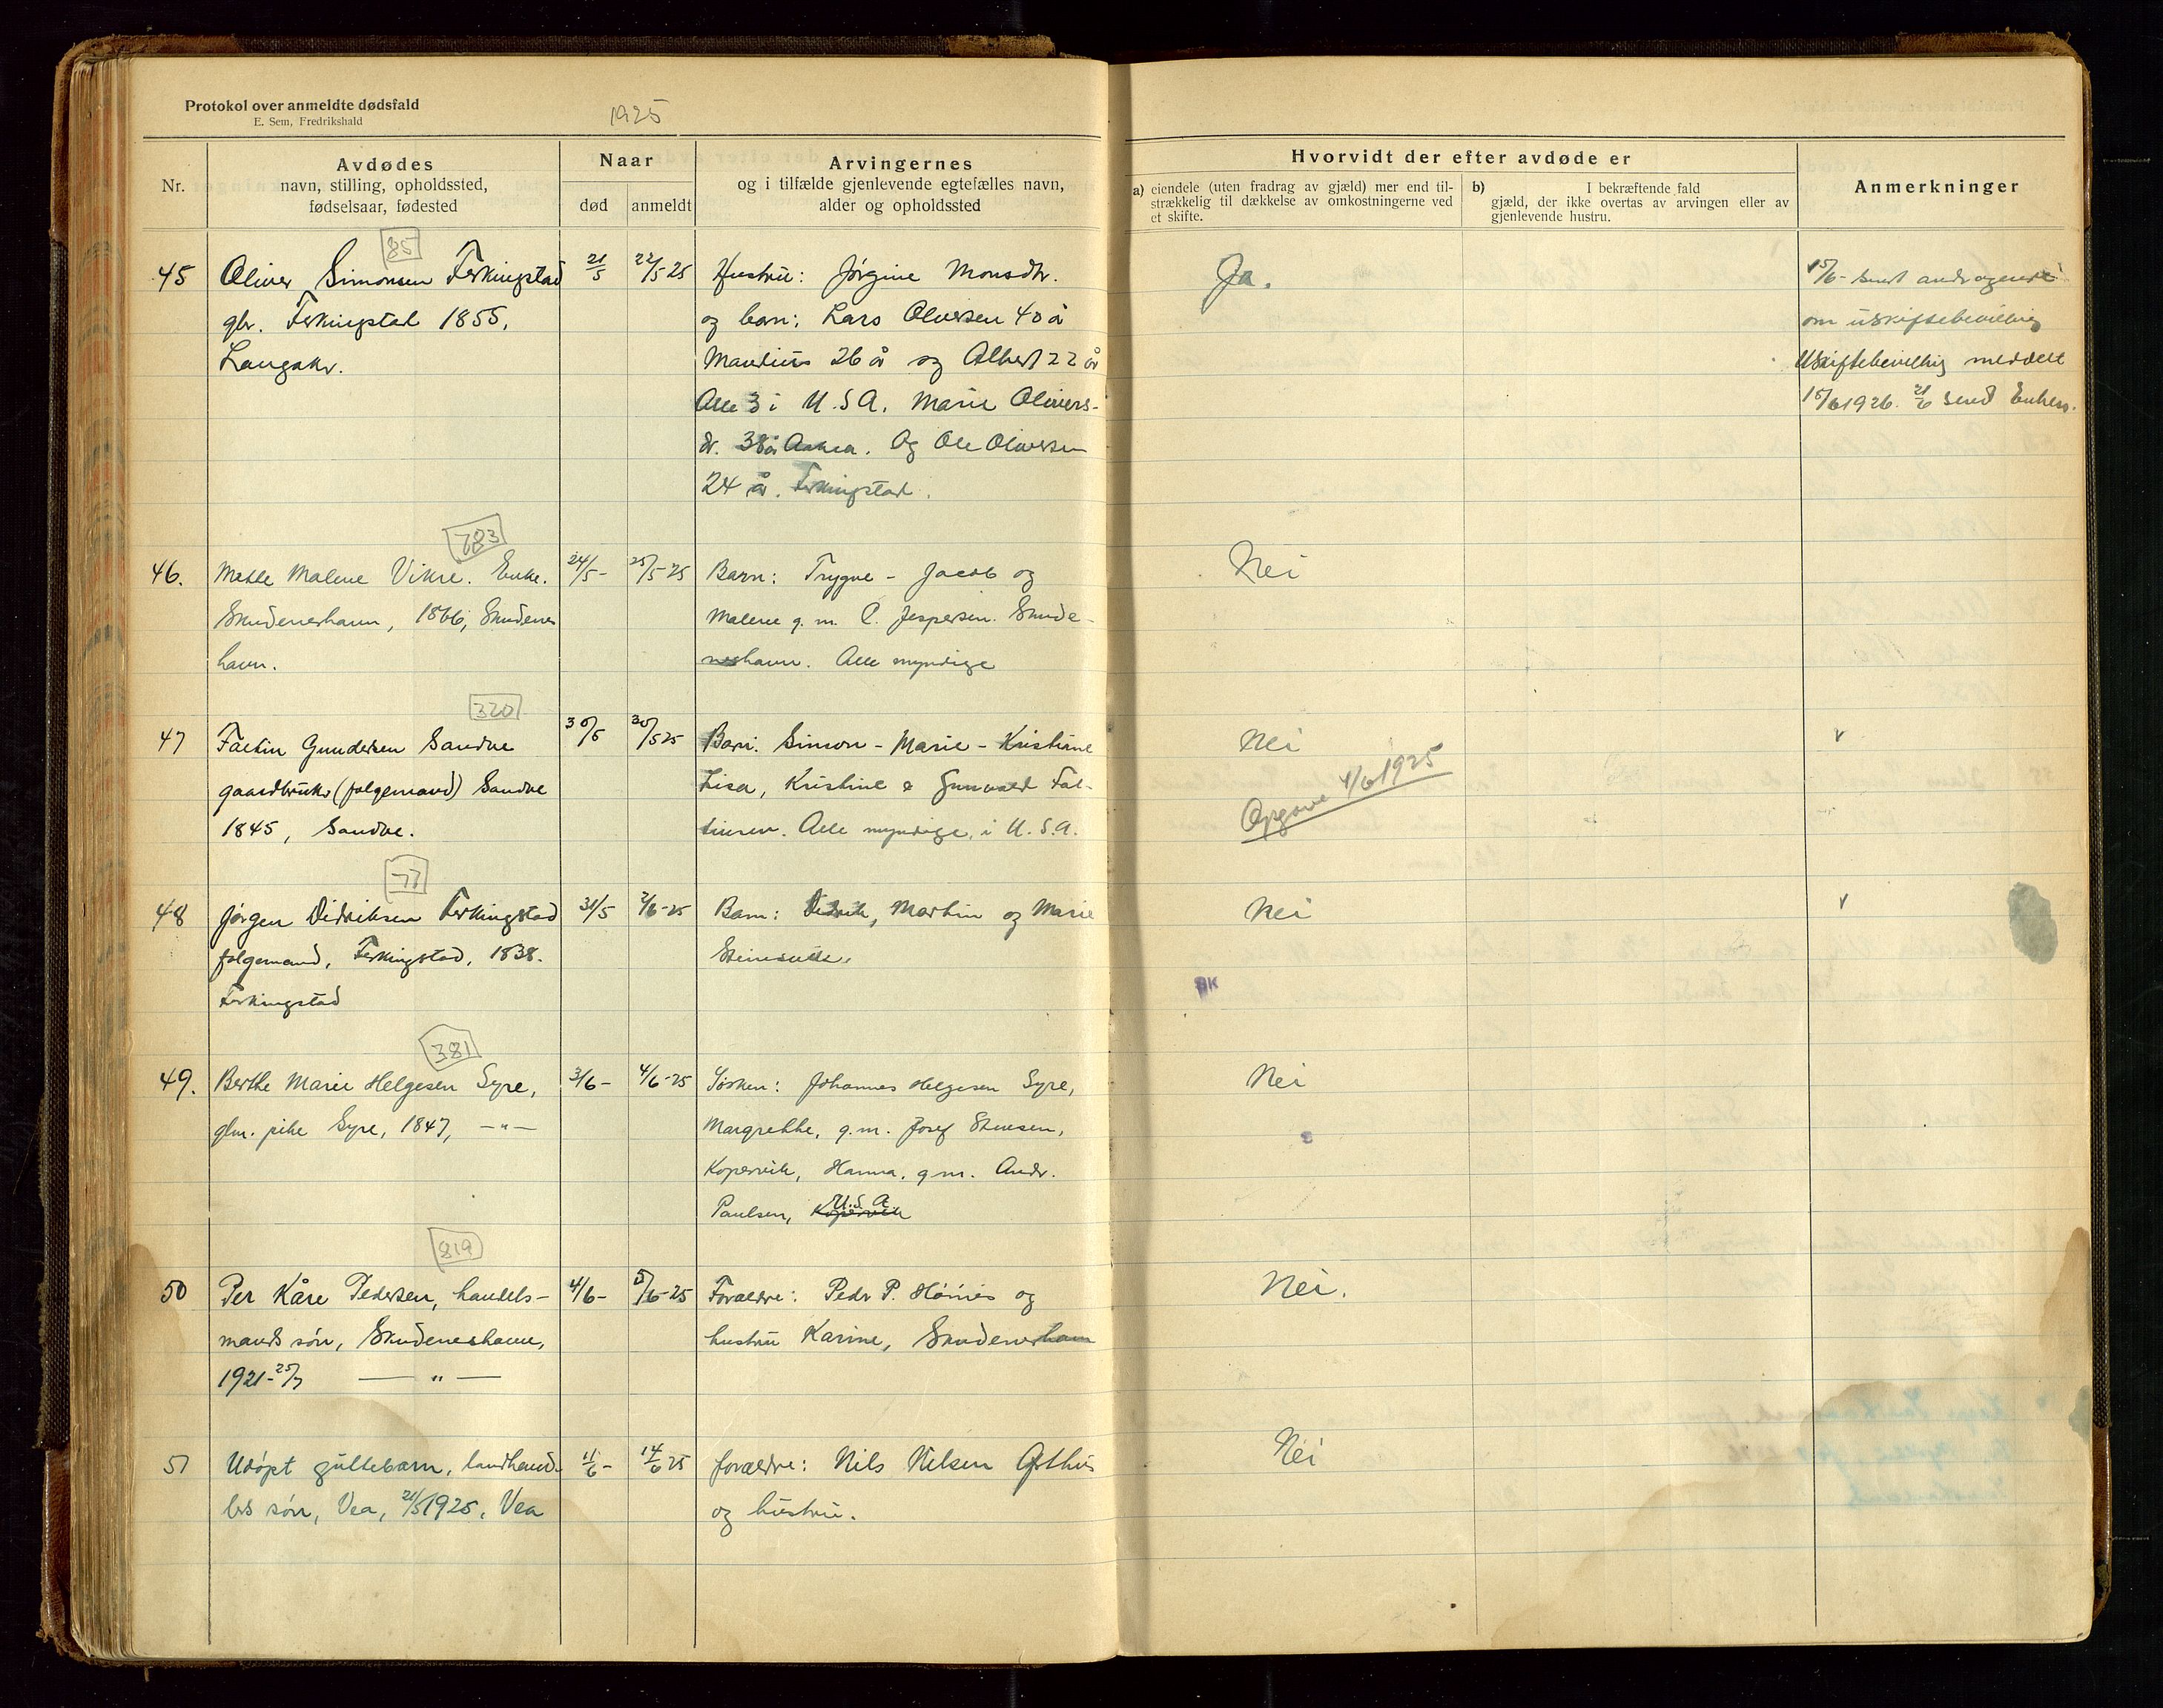 Protokol over anmeldte dødsfald
E. Sem, Fredrikshald
1925
Nr.
Avdødes
navn, stilling, opholdssted,
fødselsaar, fødested
Naar
død
anmeldt
Arvingernes
og i tilfælde gjenlevende egtefælles navn,
alder og opholdssted
Hvorvidt der efter avdøde er
a) eiendele (uten fradrag av gjæld) mer end til-
strækkelig til dækkelse av omkostningerne ved
et skifte.
b) I bekræftende fald
gjæld, der ikke overtas av arvingen eller av
gjenlevende hustru.
Anmerkninger
85
45 Oliver Simonsen Ferkingstad
gbr. Ferkingstad 1855,
Langåkr.
21/5
22/5 25
Hustru: Jørgine Monsdtr.
og barn: Lars Olversen 40 å
Mandius 26 å og Albert 22 år
Alle 3 i U.S.A. Marie Olivers-
dr. 38 å. Og Ole Olversen
24 år. Ferkingstad.
Ja.
15/6- sendt andragende
om uskiftebevilling
Uskiftebevilling meddelt
15/6 1926. 21/6 send Enken.
783
46. Mette Malene Vikre. Enke.
Skudeneshavn, 1866, Skudenes
havn.
24/5-
25/5-25
Barn: Trygve - Jacob og
Malene g. m. C. Jespersen. Skude-
neshavn. Alle myndige
Nei
320
47 Faltin Gundersen Sandve
gaardbruker (folgemand) Sandve
1845, Sandve.
30/5
30/5 25
Barn. Simon - Marie - Kristiane
Lisa, Kristine & Gunvald Fal-
tinsen. Alle myndige, i U.S.A.
Nei
Opgave 4/6 1925
v
77
48 Jørgen Didriksen Ferkingstad
folgemand, Ferkingstad, 1838.
Ferkingstad
31/5
2/6-25
Barn: Didrik, Martin og Marie
Nei
v
381
49. Berthe Marie Helgesen Syre,
glm. pike Syre, 1847, — " —
3/6-
4/6-25
Søsken: Johannes Helgesen Syre,
Margrethe, g.m. Josef Stensen,
Kopervik, Hanna, g m. Andr.
Paulsen, Kopervik U.S.A
Nei
819
50 Per Kåre Pedersen, handels-
mands søn, Skudeneshavn,
1921-25/7 — " —
4/6-
5/6-25
Forældre: Pedr P. Høines og
hustru Karine, Skudeneshavn
Nei.
51 Udøpt guttebarn, landhand-
lers søn, Vea, 21/5 1925, Vea
11/6-
14/6 25
forældre: Nils Nilsen
og hustru.
Nei